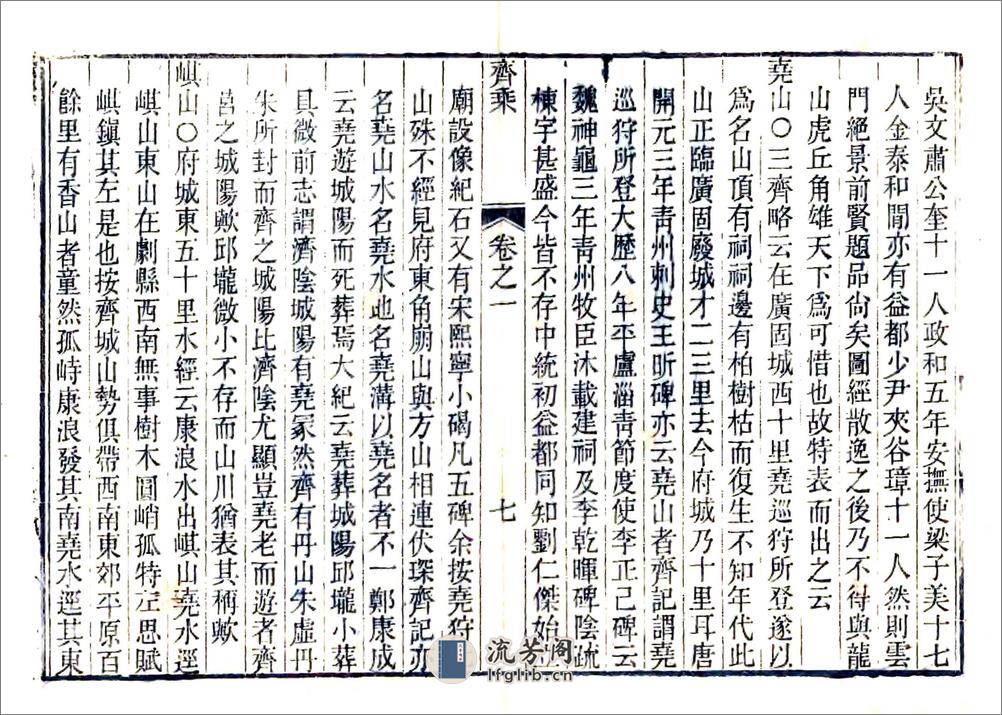 吳文肅公奎十一人政和五年安撫使梁子美十七
人金泰和間亦有益都少尹夾谷璋十一人然則雲
門絕景前賢題品尙矣圖經散逸之後乃不得與龍
山虎丘角雄天下爲可惜也故特表而出之云
堯山○三齊略云在廣固城西十里堯巡狩所登遂以
爲名山頂有祠祠邊有柏樹枯而復生不知年代此
山正臨廣固廢城才二三里去今府城乃十里耳唐
開元三年靑州刺史王昕碑亦云堯山者齊記謂堯
巡狩所登大歷八年平盧淄靑節度使李正己碑云
魏神龜三年靑州牧臣沐載建祠及李乾暉碑陰疏
棟宇甚盛今皆不存中統初益都同知劉仁傑始
齊乘 卷之一 七
廟設像紀石又有宋熙寧小碣凡五碑余按堯狩
山殊不經見府東角崩山與方山相連伏琛齊記亦
名堯山水名堯水也名堯溝以堯名者不一鄭康成
云堯遊城陽而死葬焉大紀云堯葬城陽邱壠小葬
具微前志謂濟陰城陽有堯冢然齊有丹山朱虛丹
朱所封而齊之城陽比濟陰尤顯豈堯老而遊者齊
莒之城陽歟邱壠微小不存而山川猶表其稱歟
㟚山○府城東五十里水經云康浪水出㟚山堯水逕
㟚山東山在劇縣西南無事樹木圓峭孤特左思賦
㟚鎭其左是也按齊城山勢俱帶西南東郊平原百
餘里有香山者童然孤峙康浪發其南堯水逕其東
流芳阁
lfglib.cn